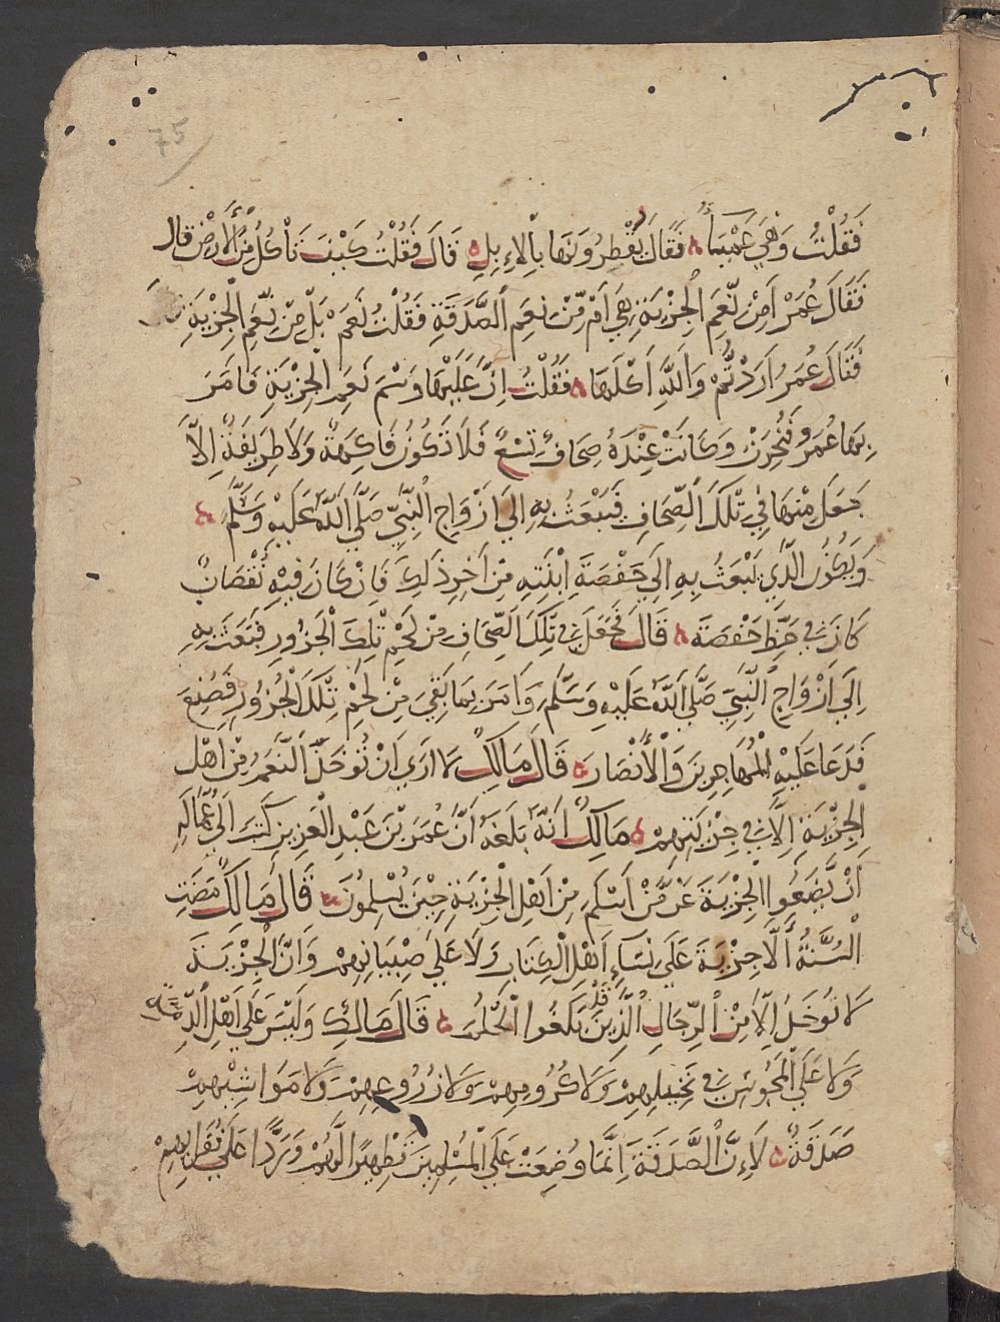 75
فَقُلْتُ وَهِيَ عَمْيَاءُ فَقَالَ يَقْطُرُونَهَا بِالْإِبِلِ قَالَ فَقُلْتُ كَيْفَ تَأْكُلُ مِنَ الْأَرْضِ قال
فَقَالَ عُمَرُ أَمِنْ نَّعَمِ الْجِزْيَةِ هِيَ أَمْ مِّنْ نَعَمِ الصَّدَقَةِ فَقُلْتُ نَعَمْ بَلْ مِنْ نَّعَمِ الْجِزْيَةِ
فَقَالَ عُمَرُ أَرَدْتُّمْ وَاللَّهِ أَكْلَهَا فَقُلْتُ إِنَّ عَلَيْهَا وَسْمَ نَعَمِ الْجِزْيَةِ فَأَمَرَ
بِهَا عُمَرُ فَنُحِرَتْ وَكَانَتْ عِنْدَهُ صِحَافٌ تِسْعٌ فَلَا تَكُونُ فَاكِهَةٌ وَلَا طَرِيفَةٌ إِلَّا
جَعَلَ مِنْهَا فِي تِلْكَ الصِّحَافِ فَيَبْعَثُ بِهِ إِلَي أَزْوَاجِ النَّبِيِّ صَلَّي اللَّهُ عَلَيْهِ وَسَلَّمَ
وَيَكُونُ الَّذِي يَبْعَثُ بِهِ إِلَي حَفْصَةَ ابْنَتِهِ مِنْ آخِرِ ذَلِكَ فَإِنْ كَانَ فِيهِ نُقْصَانٌ
كَانَ فِي حَظِّ حَفْصَةَ قَالَ فَجَعَلَ فِي تِلْكَ الصِّحَافِ مِنْ لَحْمِ تِلْكَ الْجَزُورِ فَبَعَثَ بِهِ
إِلَي أَزْوَاجِ النَّبِيِّ صَلَّي اللَّهُ عَلَيْهِ وَسَلَّمَ وَأَمَرَ بِمَا بَقِيَ مِنْ لَحْمِ تِلْكَ الْجَزُورِ فَصُنِعَ
فَدَعَا عَلَيْهِ الْمُهَاجِرِينَ وَالْأَنْصَارَ قَالَ مَالِكٌ لَا أَرَي أَنْ تُؤْخَذَ النَّعَمُ مِنْ أَهْلِ
الْجِزْيَةِ إِلَّا فِي جِزْيَتِهِمْ مَالِكٌ أَنَّهُ بَلَغَهُ أَنَّ عُمَرَ بْنَ عَبْدِ الْعَزِيزِ كَتَبَ إِلَي عُمَّالِهِ
أَنْ يَّضَعُوا الْجِزْيَةَ عَنْ مَّنْ أَسْلَمَ مِنْ أَهْلِ الْجِزْيَةِ حِينَ يُسْلِمُونَ قَالَ مَالِكٌ مَضَتِ
السُّنَّةُ أَلَّا جِزْيَةَ عَلَي نِسَاءِ أَهْلِ الْكِتَابِ وَلَا عَلَي صِبْيَانِهِمْ وَأَنَّ الْجِزْيَةَ
لَا تُؤْخَذُ إِلَّا مِنَ الرِّجَالِ الَّذِينَ قَدْ بَلَغُوا الْحُلُمَ قَالَ مَالِكٌ وَلَيْسَ عَلَي أَهْلِ الذِّمَّةِ
وَلَا عَلَي الْمَجُوسِ فِي نَخِيلِهِمْ وَلَا كُرُومِهِمْ وَلَا زُرُوعِهِمْ وَلَا مَوَاشِيهِمْ
صَدَقَةٌ لِأَنَّ الصَّدَقَةَ إِنَّمَا وُضِعَتْ عَلَي الْمُسْلِمِينَ تَطْهِيرًا لَّهُمْ وَرَدًّا عَلَي فُقَرَائِهِمْ